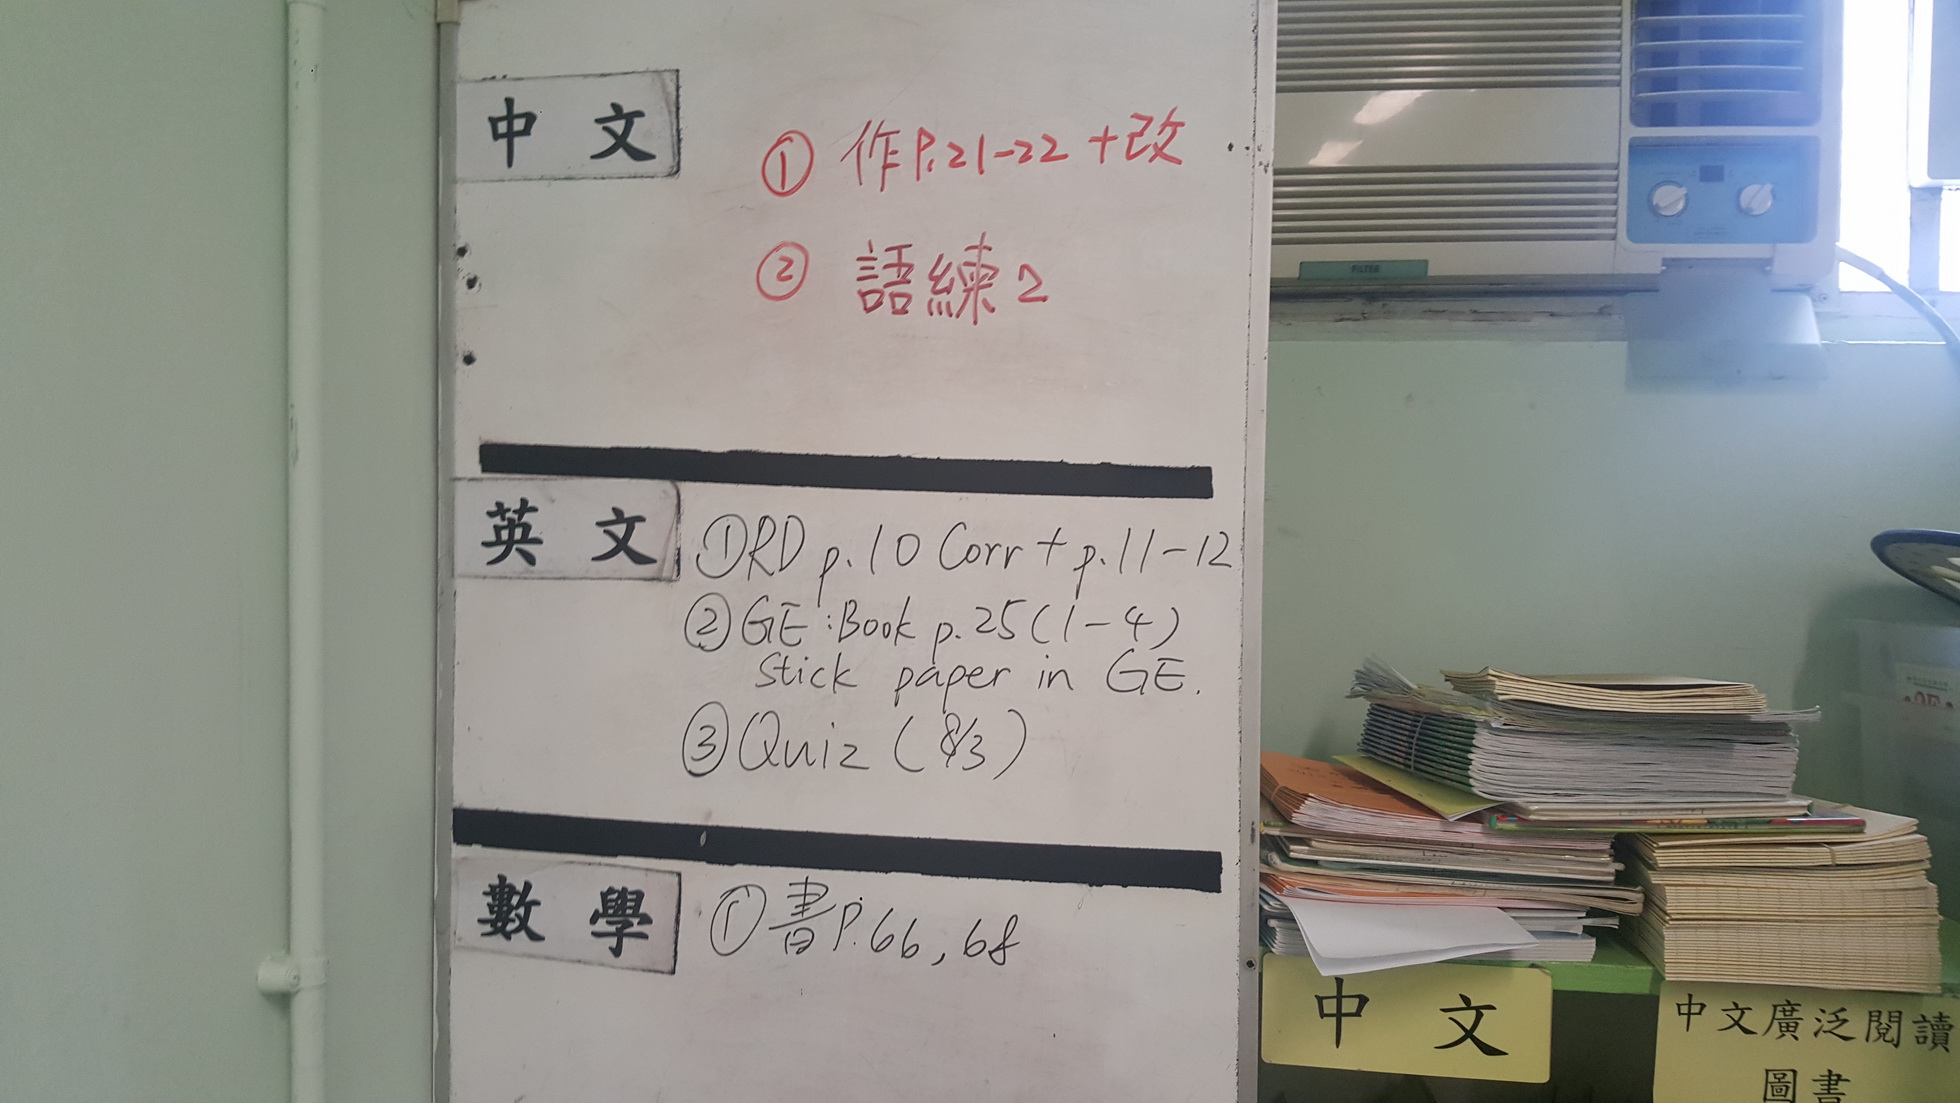 中文
① 作P.21-22 +改
② 語練2
英文
① RD p.10 Corr + p.11-12
② GE :Book p.25(1-4)
Stick paper in GE.
③ Quiz (8/3)
數學
① 書P.66,68
FILTER
中文
中文廣泛閱讀
圖書